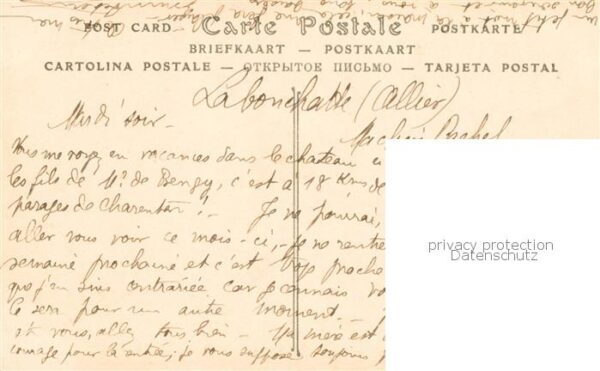 un petit mot à la maison, cela
POST CARD — Carte Postale — POSTKARTE
BRIEFKAART — POSTKAART
CARTOLINA POSTALE — ОТКРЫТОЕ ПИСЬМО — TARJETA POSTAL
Labouchatte (Allier)
Mardi soir —
Ma chère Rachel
Vous me voyez en vacances dans le chateau
les fils de Mr. de Bengy, c'est à 18 Kms de
parages de Charenton! — Je ne pourrai,
aller vous voir ce mois-ci, — Je ne rentre
semaine prochaine et c'est trop proche
que j'en suis contrariée car je connais
ce sera pour un autre moment. —
et vous, allez tous bien — Ma mère est
courage pour la rentrée; je vous suppose toujours
privacy protection
Datenschutz